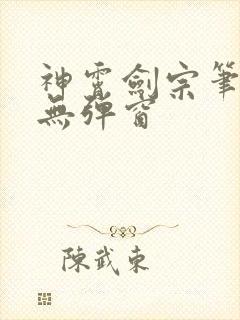 神霄劍宗筆
無彈窗
陳武東